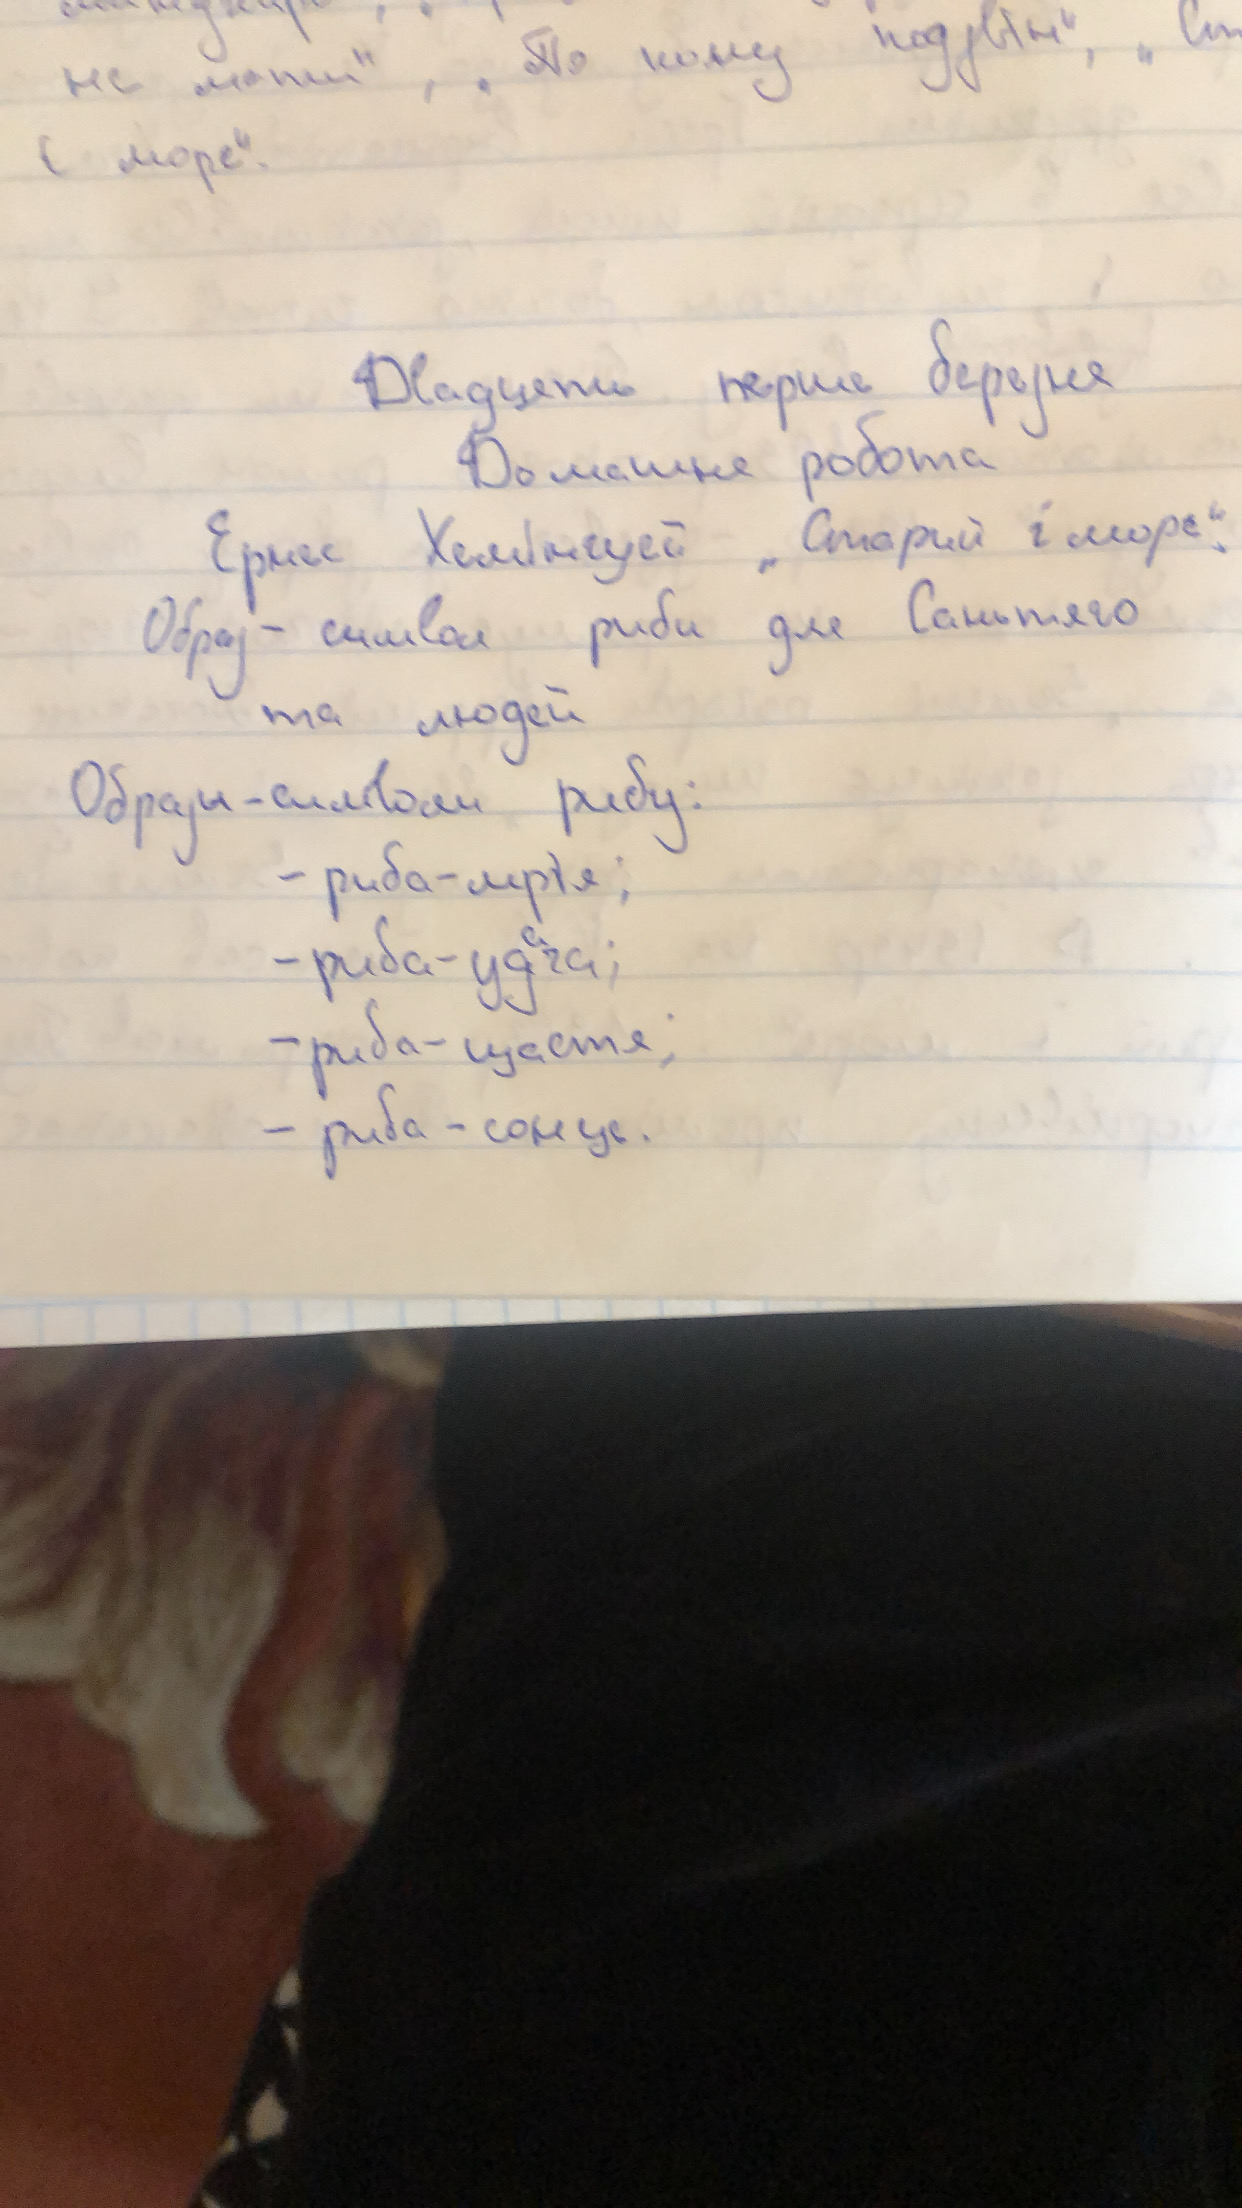 не мати", "По кому подзвін", "Ст
і море".
Двадцять перше березня
Домашня робота
Ернес Хемінгуей „Старий і море".
Образ-символ риби для Саньтяго
та людей
Образи-символи рибу:
-риба-мрія;
-риба-удача;
-риба-щастя;
-риба-сонце.